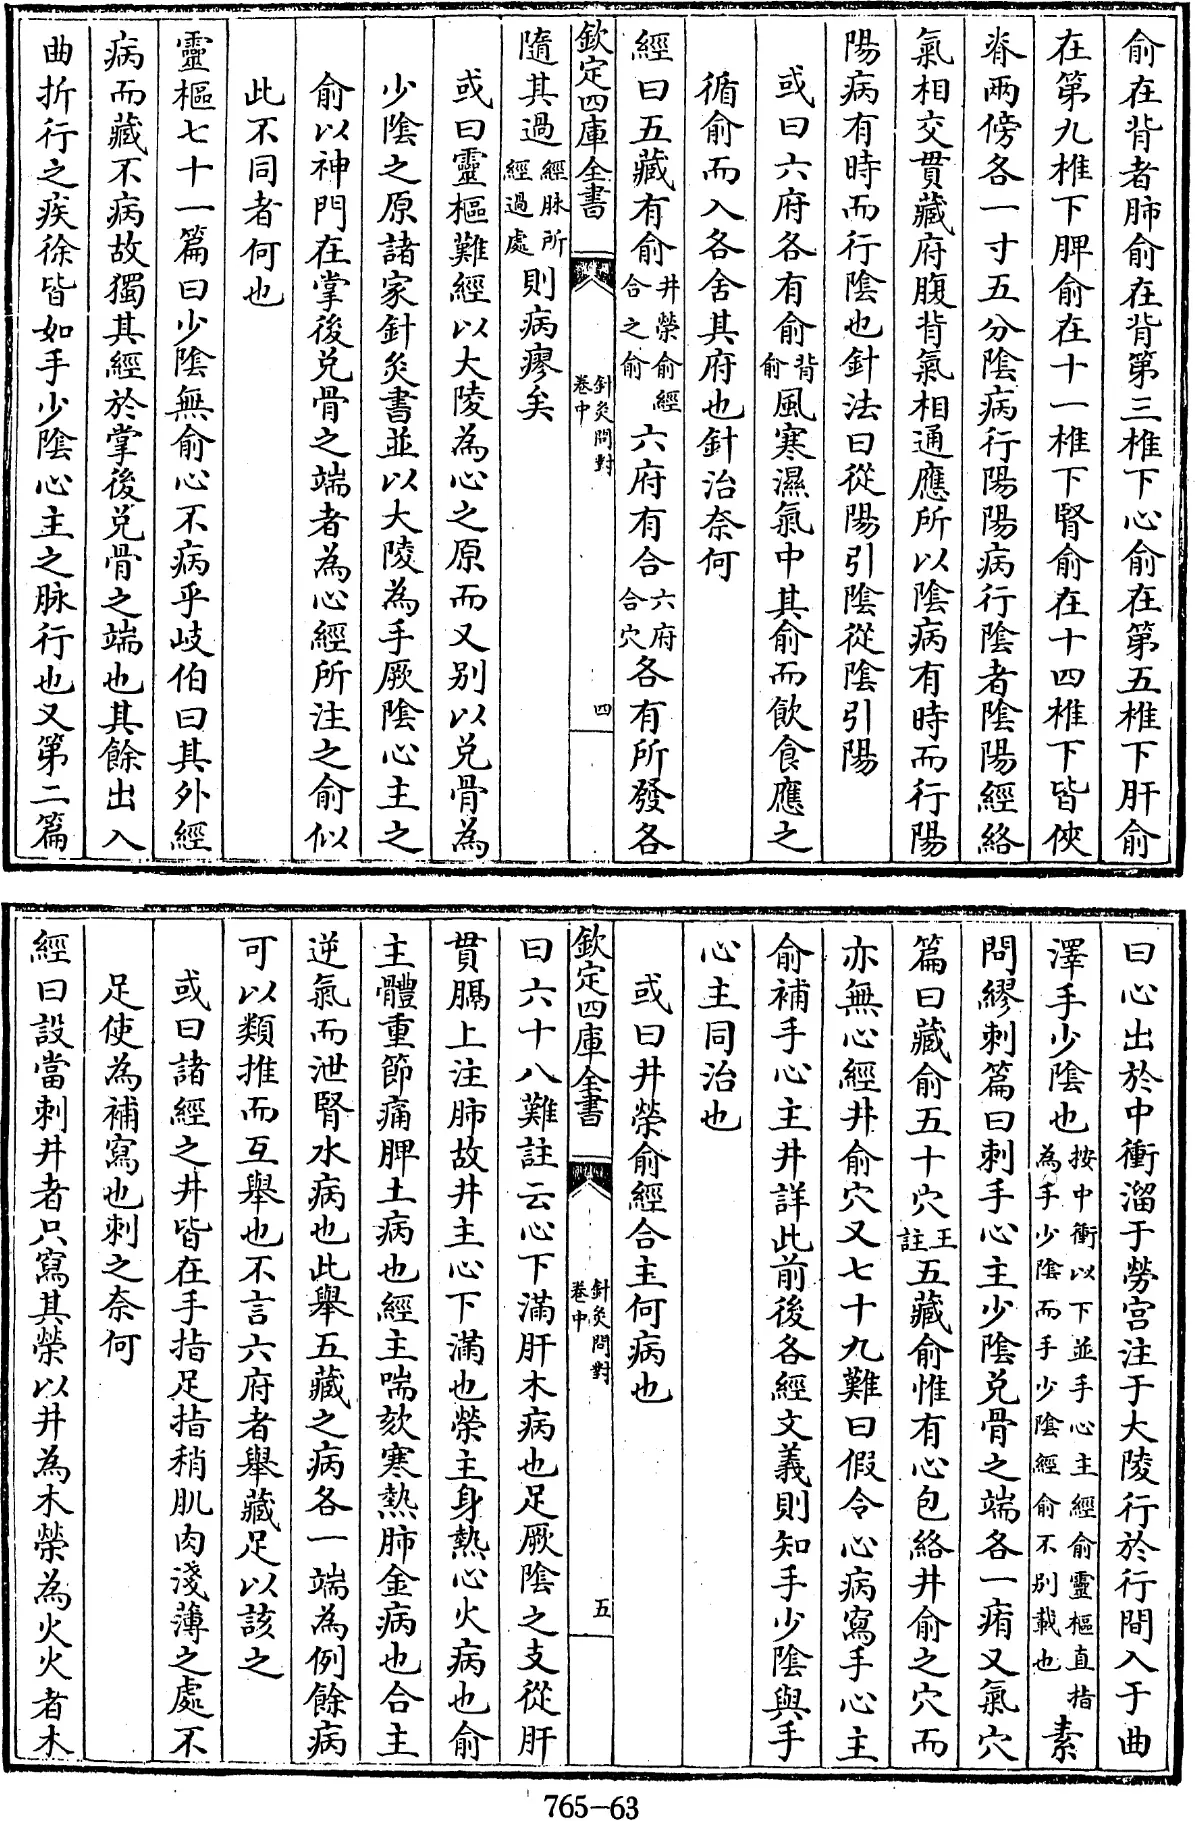 俞在背者肺俞在背第三椎下心俞在第五椎下肝俞
在第九椎下脾俞在十一椎下腎俞在十四椎下皆俠
脊兩傍各一寸五分陰病行陽陽病行陰者陰陽經絡
氣相交貫藏府腹背氣相通應所以陰病有時而行陽
陽病有時而行陰也針法曰從陽引陰從陰引陽
或曰六府各有俞背俞風寒濕氣中其俞而飲食應之
循俞而入各舍其府也針治奈何
經曰五藏有俞井滎俞經合之俞六府有合六府合穴各有所發各
欽定四庫全書
針灸問對
卷中
四
隨其過經脉所經過處則病瘳矣
或曰靈樞難經以大陵為心之原而又别以兌骨為
少陰之原諸家針灸書並以大陵為手厥陰心主之
俞以神門在掌後兌骨之端者為心經所注之俞似
此不同者何也
靈樞七十一篇曰少陰無俞心不病乎岐伯曰其外經
病而藏不病故獨其經於掌後兌骨之端也其餘出入
曲折行之疾徐皆如手少陰心主之脉行也又第二篇
曰心出於中衝溜于勞宫注于大陵行於行間入于曲
澤手少陰也按中衝以下並手心主經俞靈樞直指為手少陰而手少陰經俞不别載也素
問繆刺篇曰刺手心主少陰兌骨之端各一痏又氣穴
篇曰藏俞五十穴王註五藏俞惟有心包絡井俞之穴而
亦無心經井俞穴又七十九難曰假令心病寫手心主
俞補手心主井詳此前後各經文義則知手少陰與手
心主同治也
或曰井滎俞經合主何病也
欽定四庫全書
針灸問對
卷中
五
曰六十八難註云心下滿肝木病也足厥陰之支從肝
貫膈上注肺故井主心下滿也滎主身熱心火病也俞
主體重節痛脾土病也經主喘欬寒熱肺金病也合主
逆氣而泄腎水病也此舉五藏之病各一端為例餘病
可以類推而互舉也不言六府者舉藏足以該之
或曰諸經之井皆在手指足指稍肌肉淺薄之處不
足使為補寫也刺之奈何
經曰設當刺井者只寫其滎以井為木滎為火火者木
765-63